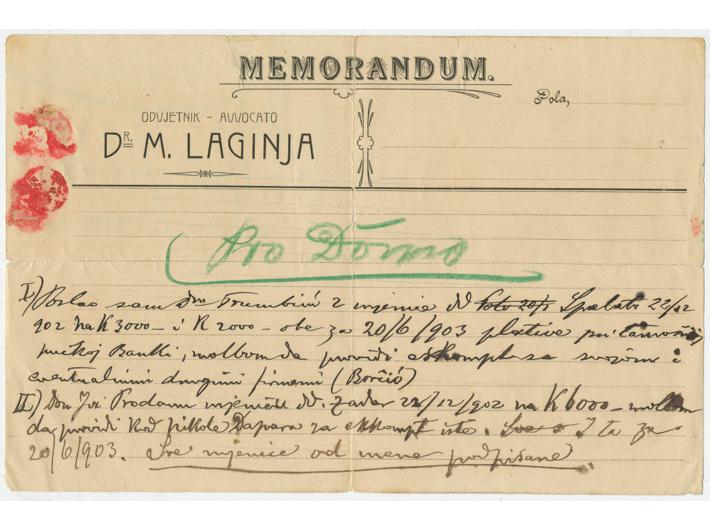 MEMORANDUM.
Pola,
ODVJETNIK - AVVOCATO
DR. M. LAGINJA
Pro Domo
I) Poslao sam Drn Trumbiću 2 mjenice dd Spalato 22/12
902 na K 3000 – i K 2000 – obe za 20/6/903 plative pri tamošnjoj
pučkoj Banki, molbom da providi eskompt sa svojom i
eventualnimi drugimi firmami (Borčić)
II) Don Ivi Prodanu mjenicu dd. Zadar 22/12/902 na K 6000 – molbom
da providi kod za eskompt iste. I ta za
20/6/903. Sve mjenice od mene podpisane.